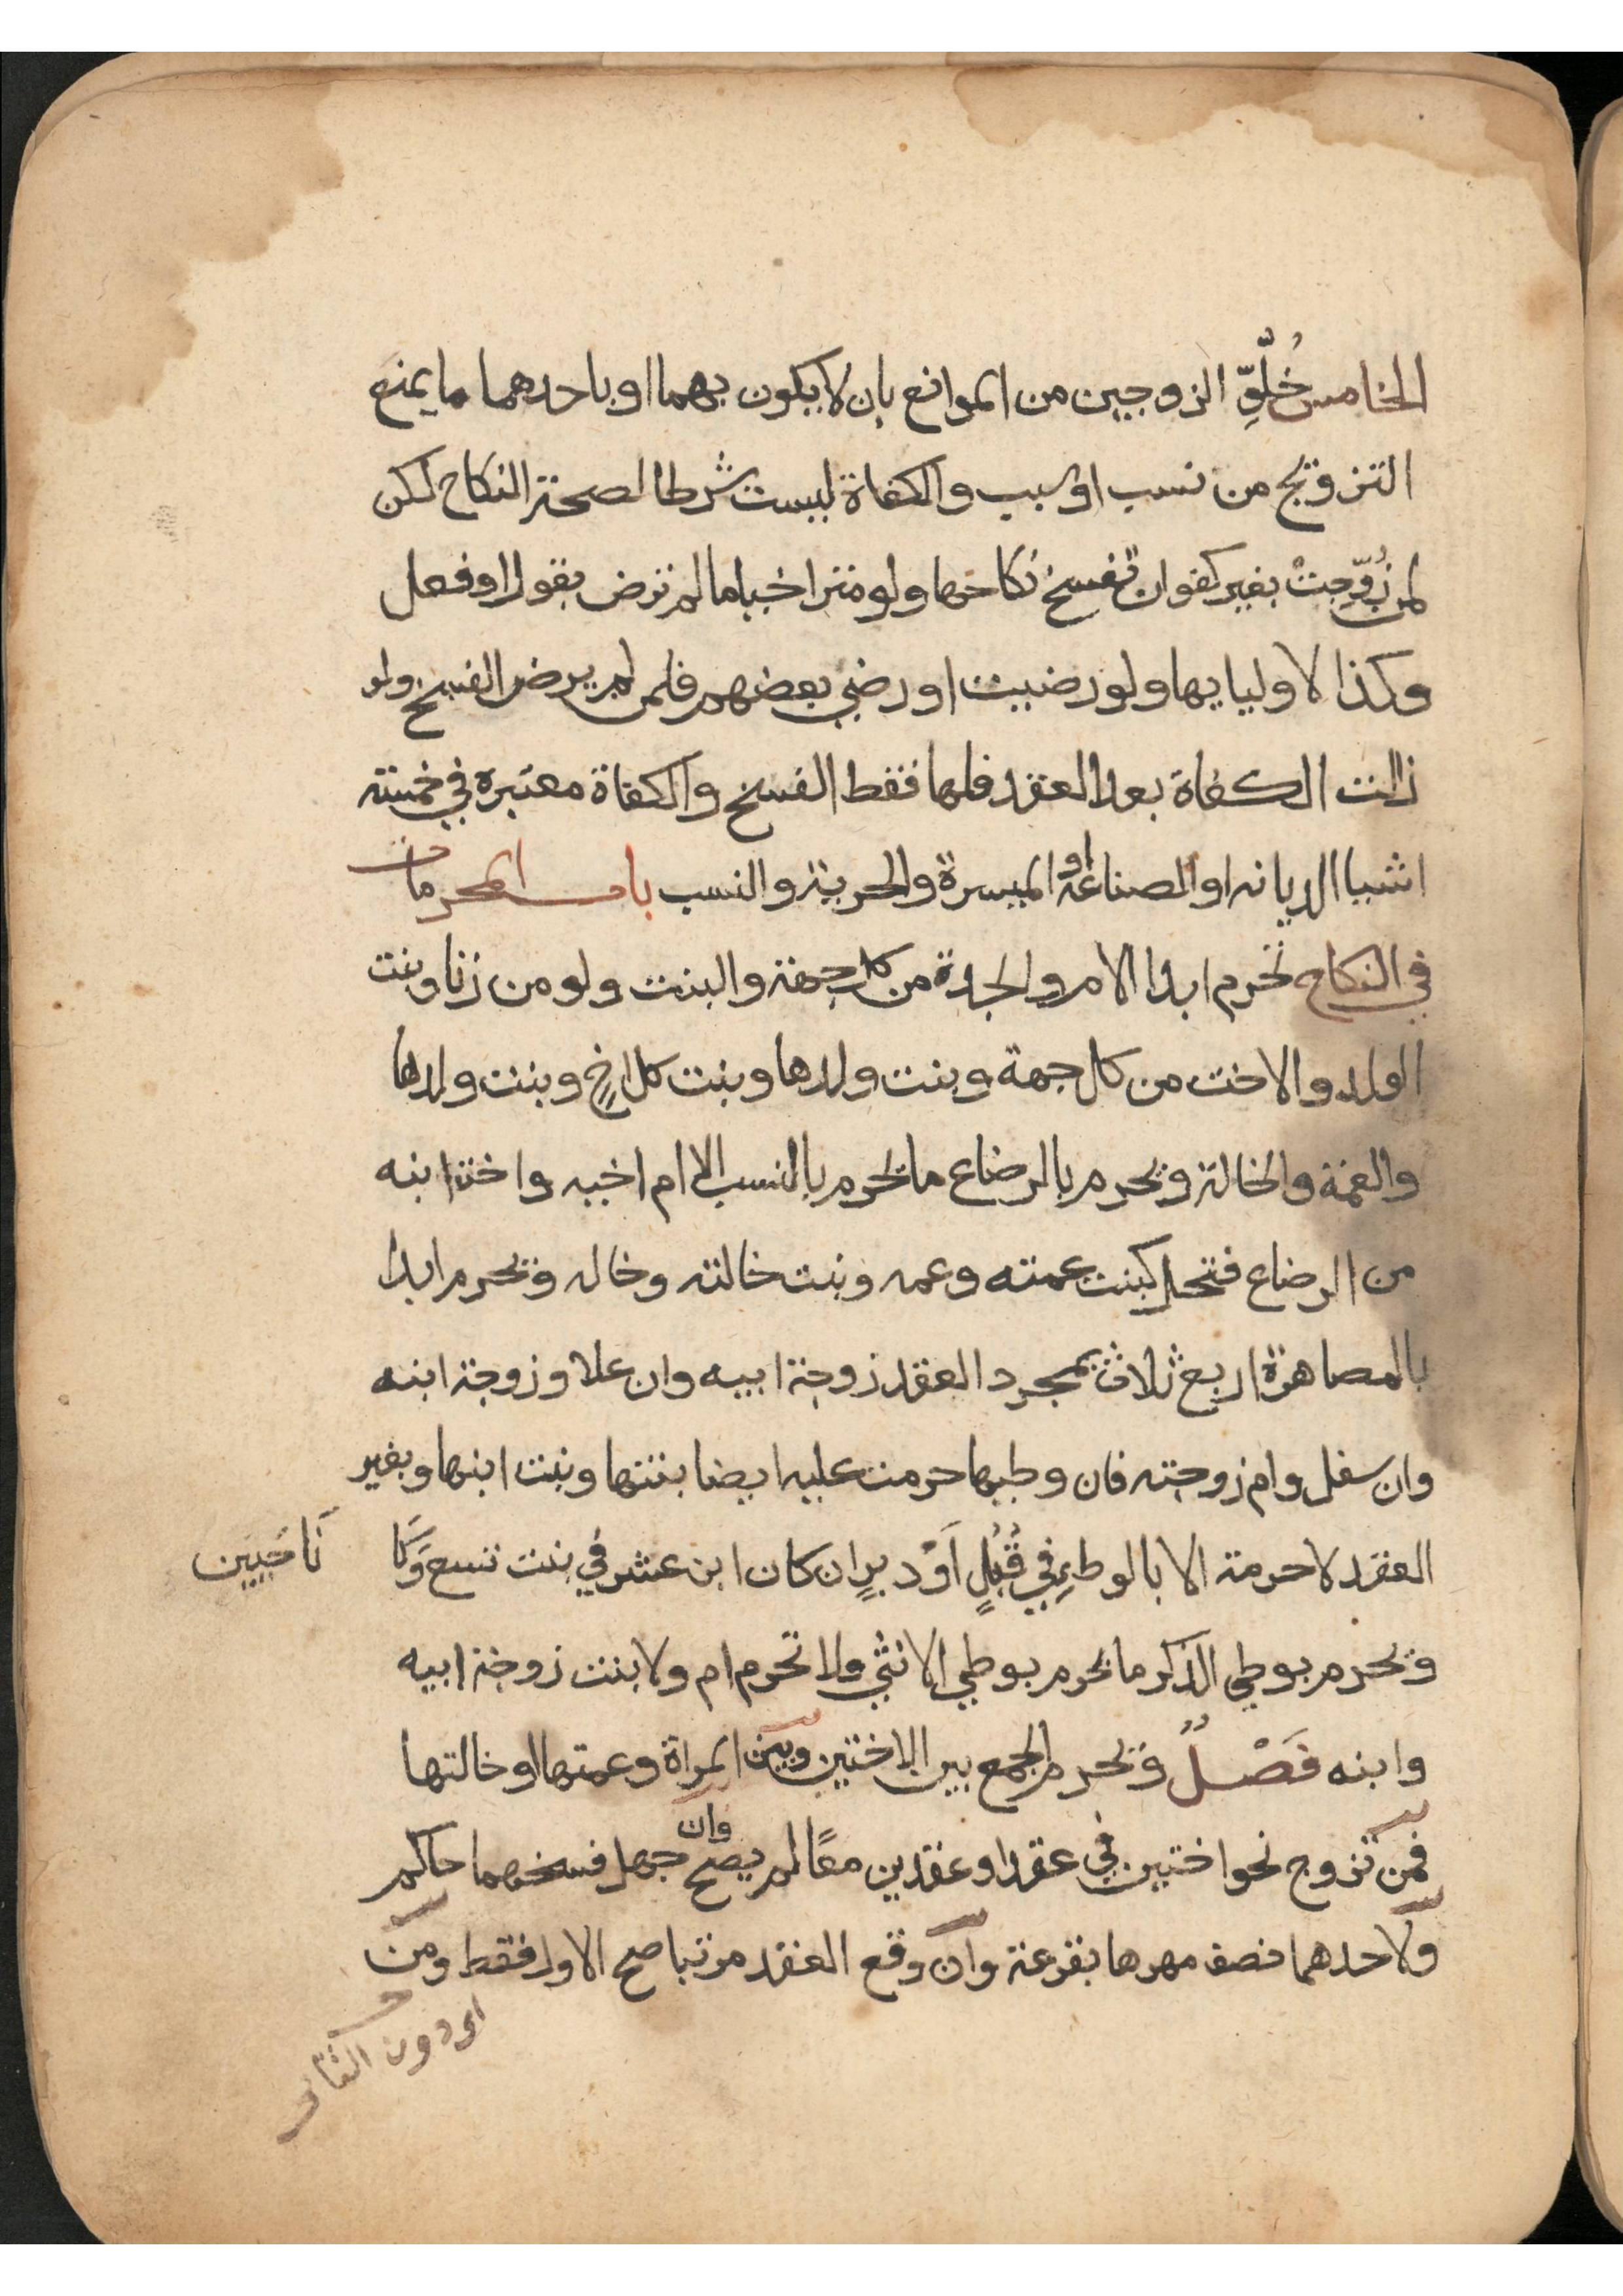 الخامس خُلُوِّ الزوجين من الموانع بان لا يكون بهما او باحدهما ما يمنع
التزويج من نسب او سبب والكفاة ليست شرطا لصحة النكاح لكن
لمن زُوِّجتْ بغير كفو ان تفسخ نكاحها ولو متراخيا ما لم ترض بقول او فعل
وكذا لاوليايها ولو رضيت او رضي بعضهم فلمن لم يرض الفسخ ولو
زالت الكفاة بعد العقد فلها فقط الفسخ والكفاة معتبرة في خمسة
اشيا الديانه او الصناعة او الميسرة والحرية والنسب باب المحرمات
في النكاح تحرم ابدا الام والجدة من كل جهة والبنت ولو من زنا وبنت
الولد والاخت من كل جهة وبنت ولدها وبنت كل اخٍ وبنت ولدها
والعمة والخالة ويحرم بالرضاع ما يحرم بالنسب الا ام اخيه واخت ابنه
من الرضاع فتحل كبنت عمته وعمه وبنت خالته وخاله ويحرم ابدا
بالمصاهرة اربع ثلاث بمجرد العقد زوجة ابيه وان علا وزوجة ابنه
وان سفل وام زوجته فان وطيها حرمت عليه ايضا بنتها وبنت ابنها وبغير
العقد لا حرمة الا بالوطيِ في قُبُلٍ اَوْ دبرٍ ان كان ابن عشر في بنت تسع وَكَا
نَا حَيين
ويحرم بوطي الذكر ما يحرم بوطي الانثي ولا تحرم ام ولا بنت زوجة ابيه
وابنه فَصْــلٌ ويحرم الجمع بين الاختين وبين المراة وعمتها او خالتها
فمن تزوج نحو اختين في عقد او عقدين معًا لم يصح وان جهل فسخهما حاكم
ولاحدهما نصف مهرها بقرعة وان وقع العقد مرتبا صح الاول فقط ومن
اي دون الثاني